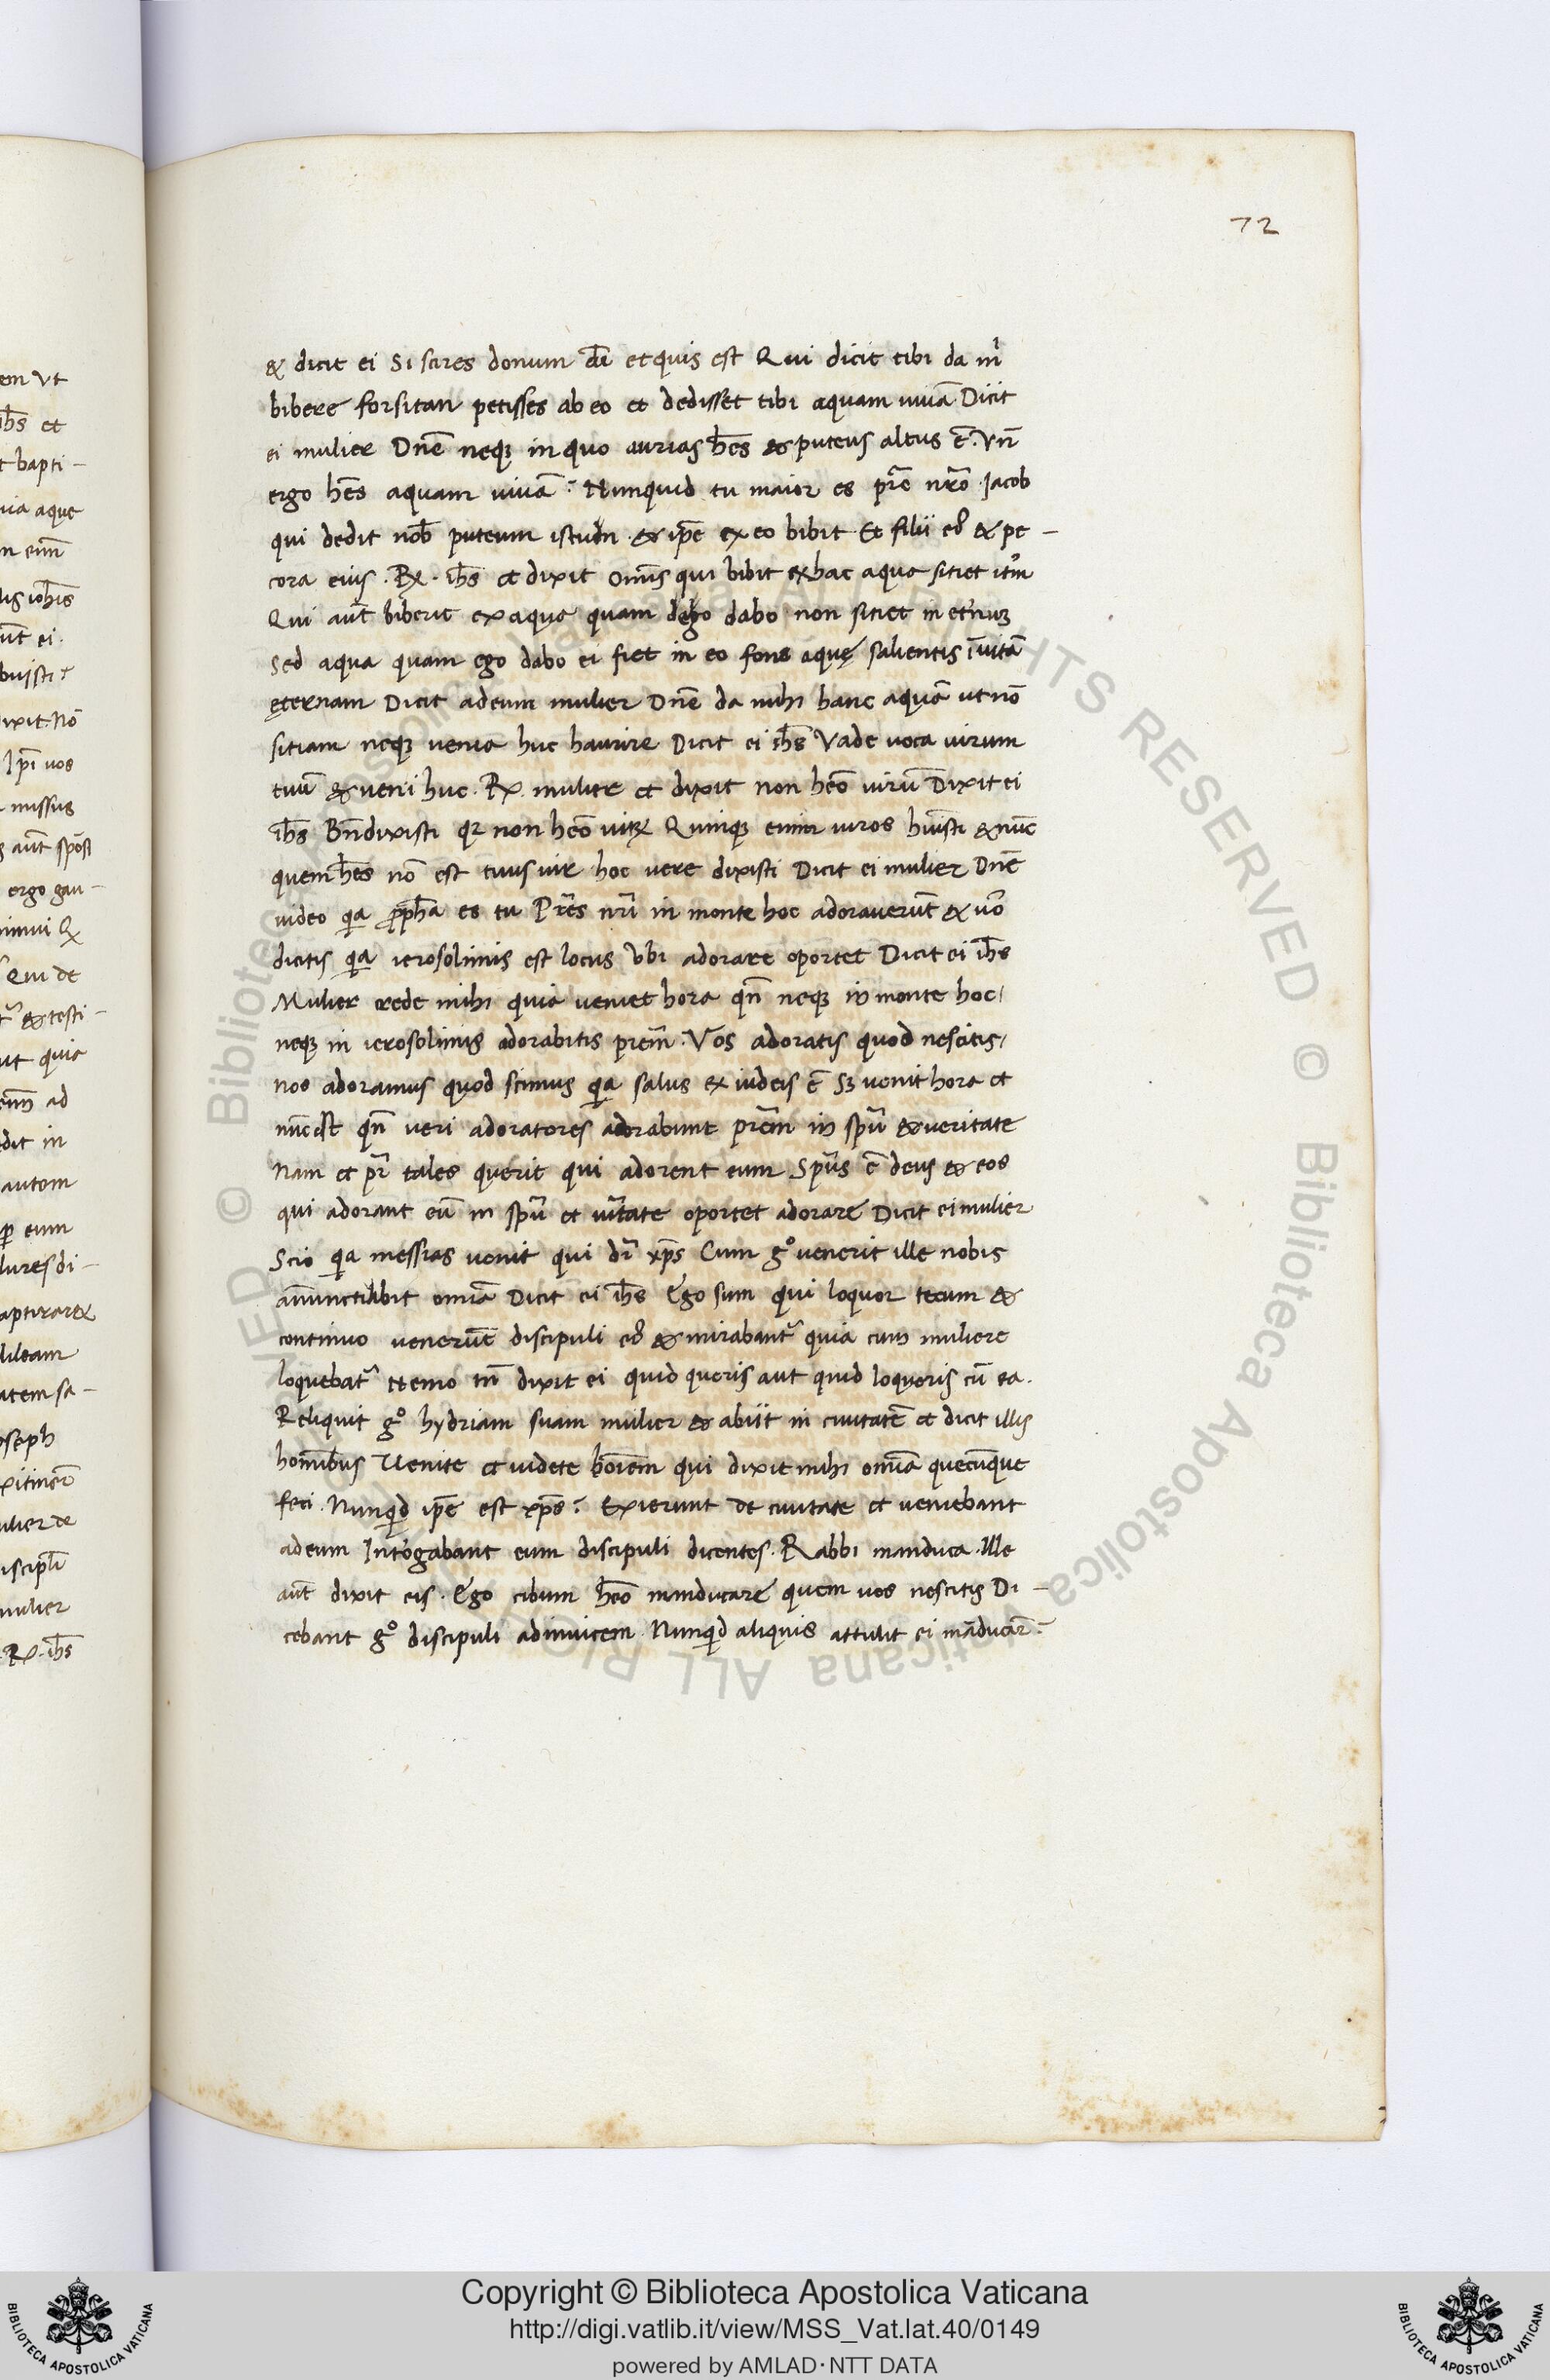 72
& dicit ei Si scires donum dei et quis est Qui dicit tibi da mi
bibere forsitan petisses ab eo et dedisset tibi aquam uiuā Dicit
ei mulier Dn̄e neqȝ in quo aurias hēs & puteus altus ē. Vn̄
ergo hēs aquam uiuā? Nunquid tu maior es pr̄e nr̄o Iacob
qui dedit nob̄ puteum istum & ip̄e ex eo bibit Et filii eꝰ & pe-
cora eius. R̷. ih̄s et dixit omīs qui bibit ex hac aqua sitiet itm̄
Qui aūt biberit ex aqua quam ego dabo non sitiet in etnuȝ
Sed aqua quam ego dabo ei fiet in eo fons aquę salientis ī uitā
ęternam Dicit ad eum mulier Dn̄e da mihi hanc aquā ut nō
sitiam neqȝ uenia huc haurire Dicit ei ih̄s Vade uoca uirum
tuū & ueni huc. R̷. mulier et dixit non hēo uirū Dixit ei
ih̄s Bn̄ dixisti qꝛ non hēo uiꝝ Quinqȝ enim uiros huīsti & nūc
quem hēs nō est tuus uir hoc uere dixisti Dicit ei mulier Dn̄e
uideo qia ꝓph̄a es tu Pr̄es nr̄i in monte hoc adorauerūt & uō
dicitis qia ierosolimis est locus Vbi adorare oportet Dicit ei ih̄s
Mulier crede mihi quia ueniet hora qn̄ neqȝ in monte hoc/
neqȝ in ierosolimis adorabitis pr̄em. Vos adoratis quod nescitis/
nos adoramus quod scimus qia salus ex iudeis ē Sȝ uenit hora et
nūc est qn̄ ueri adoratores adorabunt pr̄em in sp̄u & ueritate
Nam et pr̄ tales querit qui adorent eum Sp̄us ē deus & eos
qui adorant eū in sp̄u et uītate oportet adorare Dicit ei mulier
Scio qia messias uenit qui dr̄ xp̄s Cum g° uenerit ille nobis
annunctiabit omīa Dicit ei ih̄s Ego sum qui loquor tecum &
continuo uenerūt discipuli eꝰ & mirabantᷣ quia cum muliere
loquebatᷣ Nemo tn̄ dixit ei quid queris aut quid loqueris cū ea.
Reliquit g° hydriam suam mulier & abiit in ciuitatē et dicit illis
hominibus Uenite et uidete hoīem qui dixit mihi omīa quecūque
feci. Nunqid ip̄e est xp̄s? Exierunt de ciuitate et ueniebant
ad eum Intogabant eum discipuli dicentes. Rabbi manduca. Ille
aūt dixit eis. Ego cibum hēo manducare quem uos nescitis Di-
cebant g° discipuli adinuicem Nunqid aliquis attulit ei māducar̄?
Copyright © Biblioteca Apostolica Vaticana
http://digi.vatlib.it/view/MSS_Vat.lat.40/0149
powered by AMLAD·NTT DATA